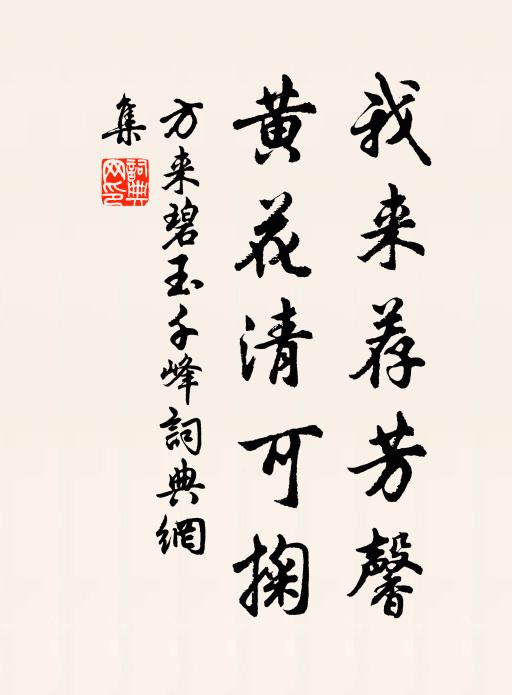 我来荐芳馨
黄花清可掬
方来碧玉千峰詞典網
集
詞典網印